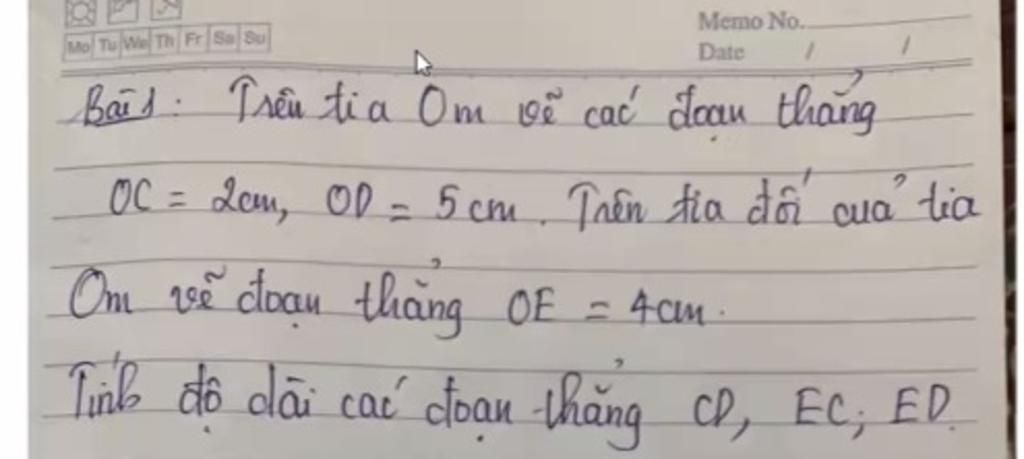 Mo Tu We Th Fr Sa Su
Memo No.
Date / /
Bài 1: Trên tia Om vẽ các đoạn thẳng
OC = 2cm, OD = 5cm. Trên tia đối của tia
Om vẽ đoạn thẳng OE = 4cm.
Tính độ dài các đoạn thẳng CD, EC; ED.